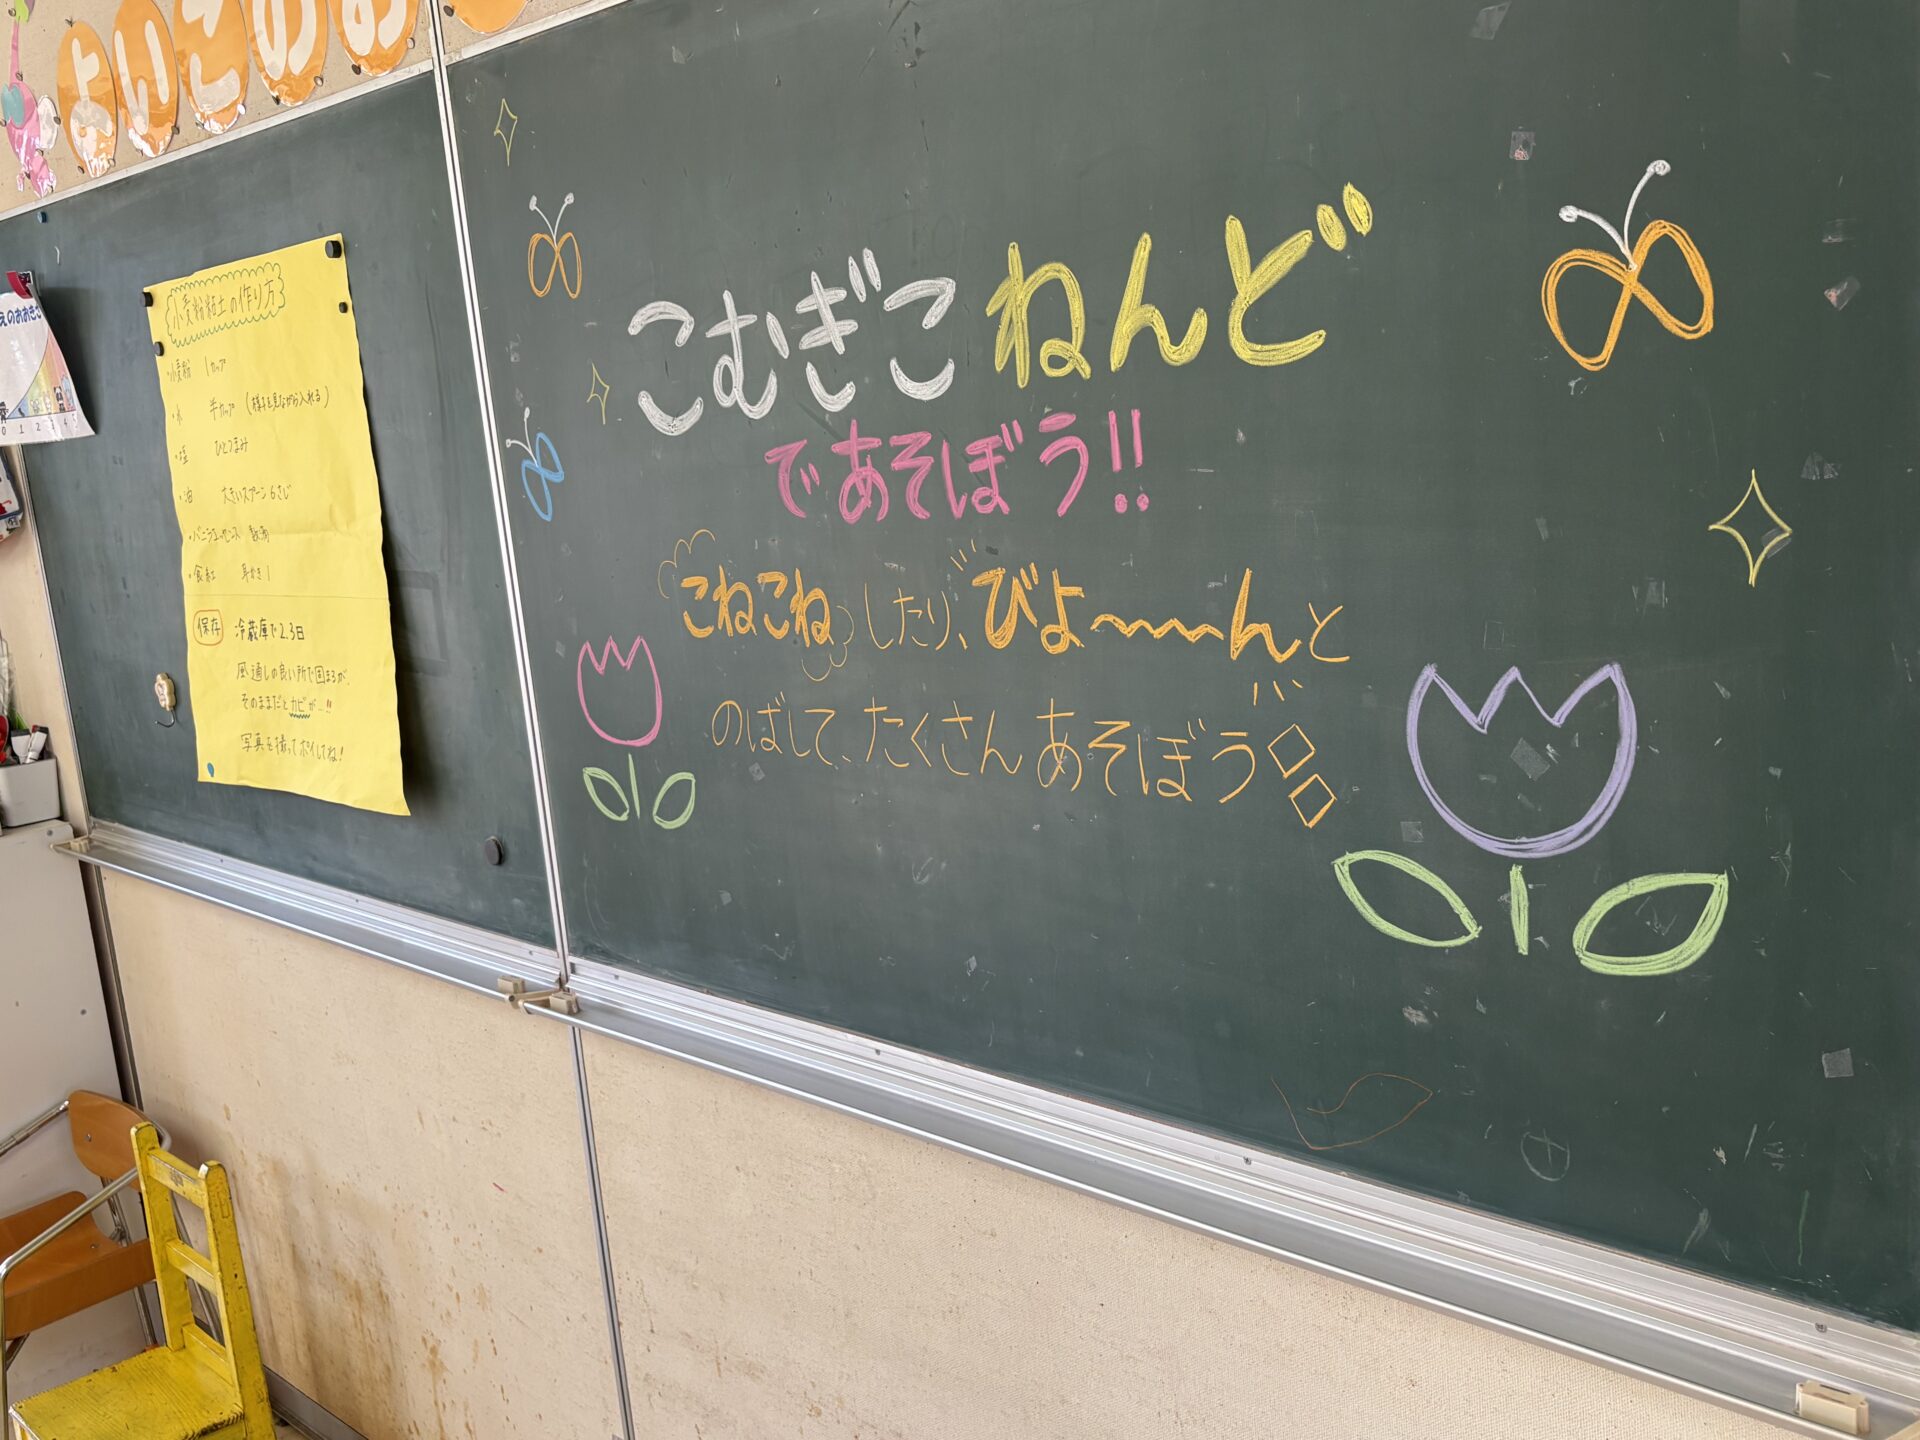 よいこのお
えのおおきさ
0 1 2 3 4 5
小麦粉粘土の作り方
・小麦粉 1カップ
・水 半カップ (様子を見ながら入れる)
・塩 ひとつまみ
・油 大きいスプーン6さじ
・バニラエッセンス 数滴
・食紅 耳かき1
保存 冷蔵庫で2.3日
風通しの良い所で固まるが、
そのままだとカビが…!!
写真を撮ってポイしてね!
こむぎこねんど
であそぼう!!
こねこねしたり、びよ〜〜〜んと
のばして、たくさんあそぼう